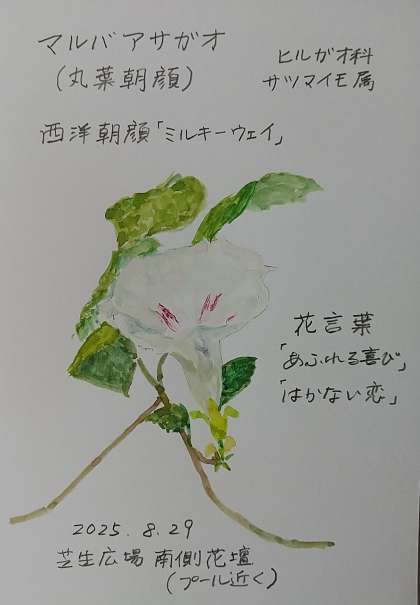 マルバアサガオ
(丸葉朝顔)
ヒルガオ科
サツマイモ属
西洋朝顔「ミルキーウェイ」
花言葉
「あふれる喜び」
「はかない恋」
2025.8.29
芝生広場 南側花壇
(プール近く)